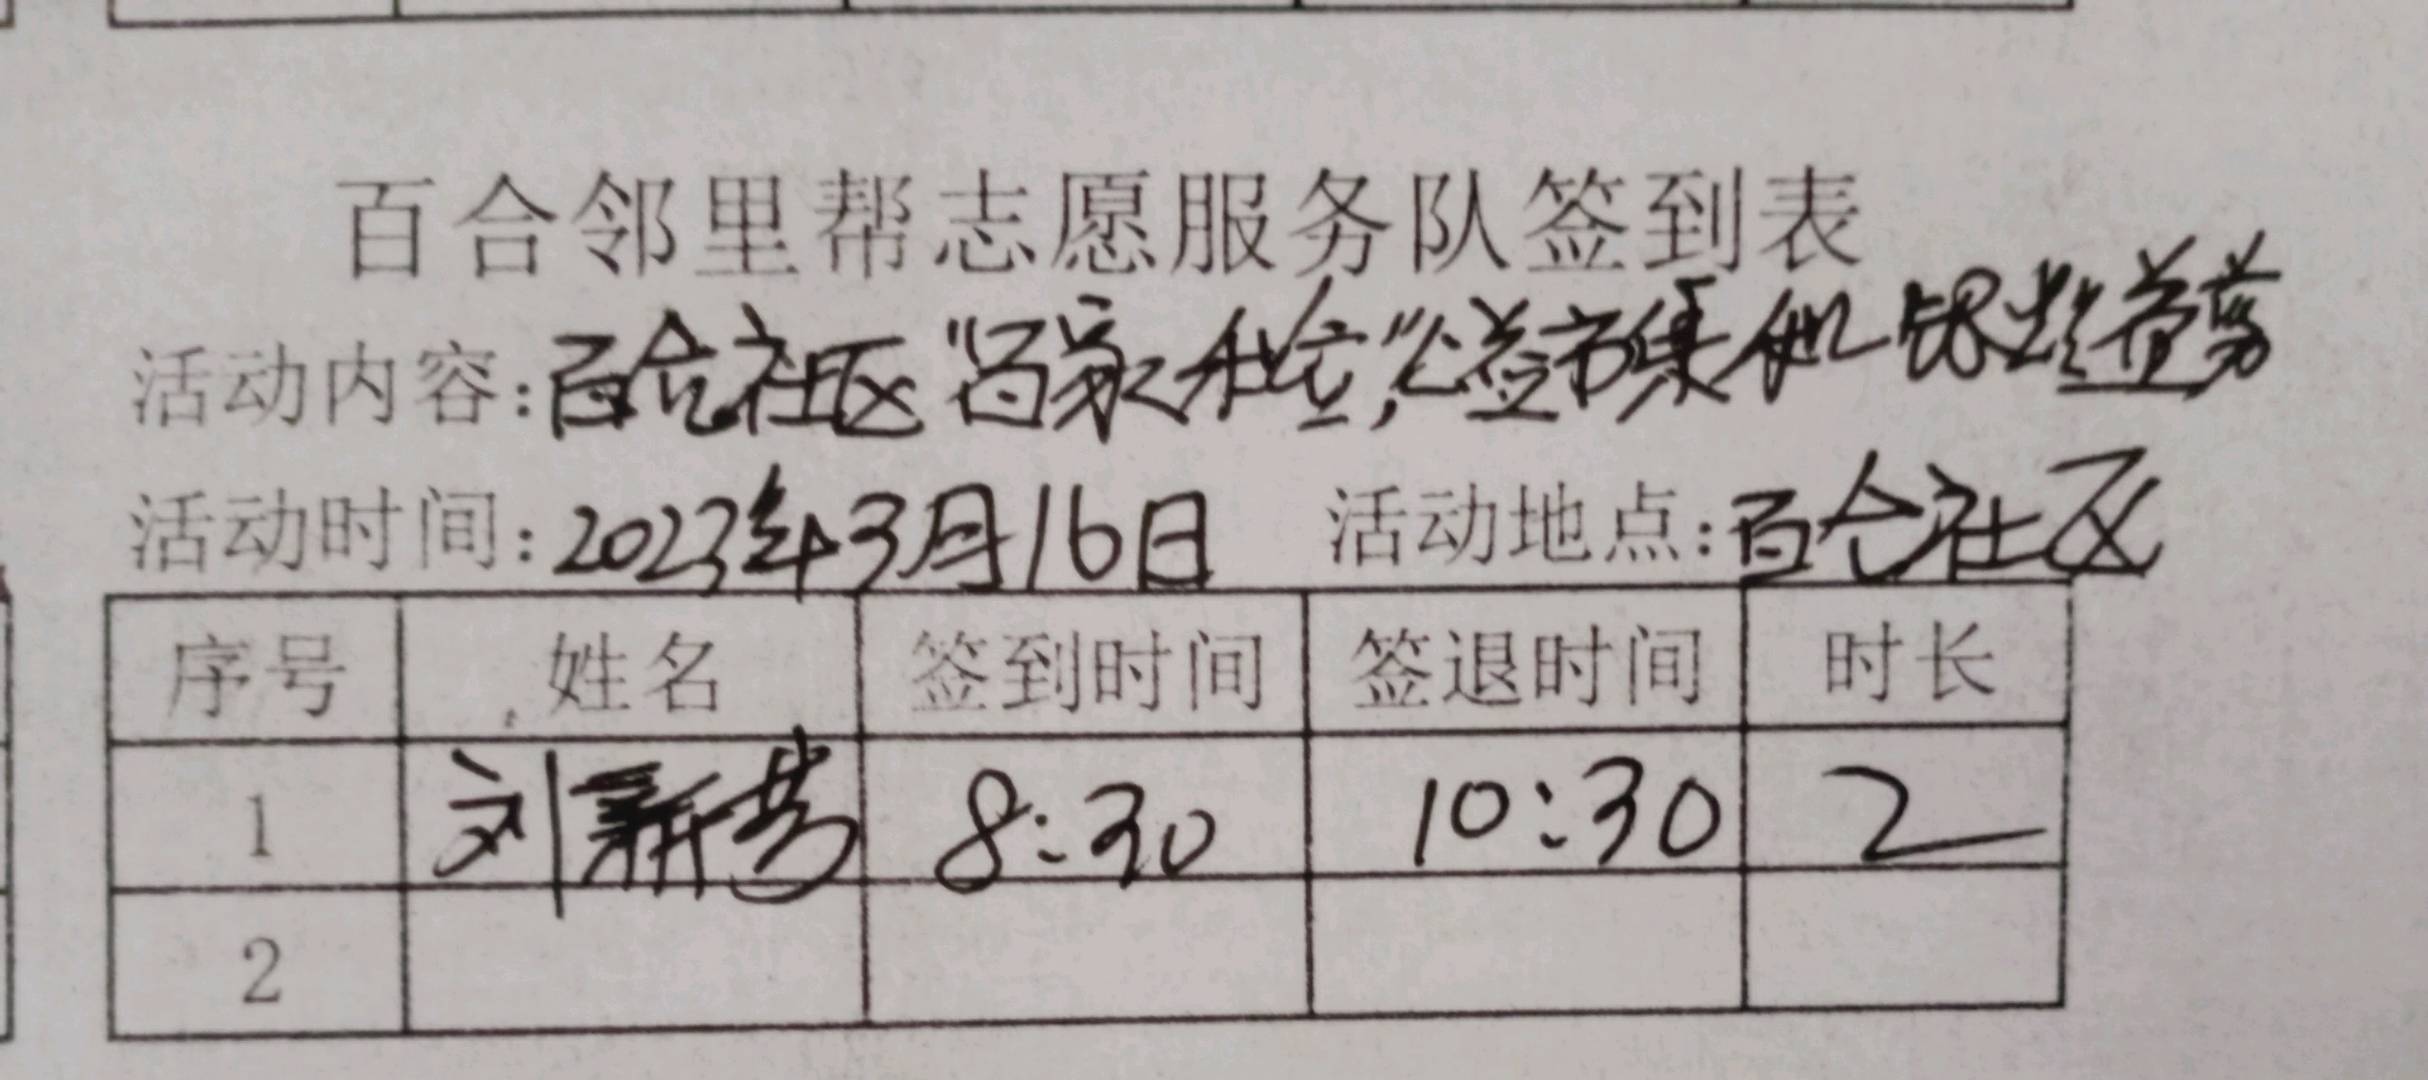 百合邻里帮志愿服务队签到表
活动内容：百合社区“百家 ”公益市集 银龄益剪
活动时间：2023年3月16日 活动地点：百合社区
序号 姓名 签到时间 签退时间 时长
1 刘新芳 8:30 10:30 2
2